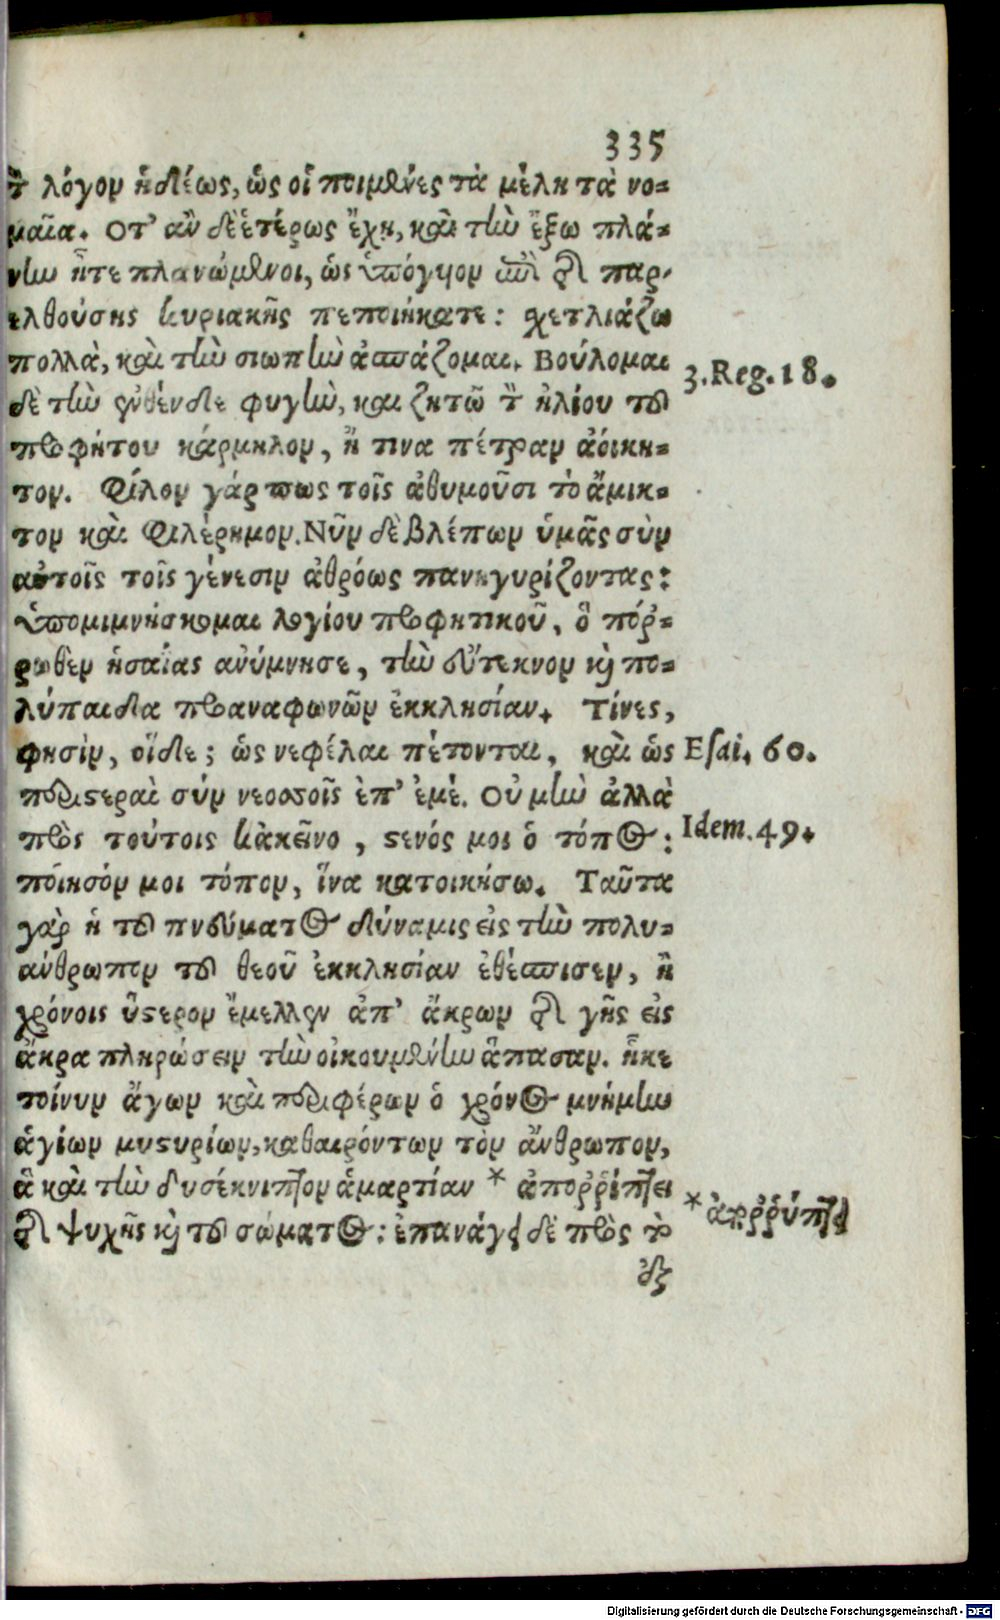 335
τὸν λόγον ἡδέως, ὡς οἱ ποιμένες τὰ μέλη τὰ νο-
μαῖα. Οτ' ἂν δὲ ἑτέρως ἔχῃ, καὶ τὴν ἔξω πλά-
νην ἦτε πλανώμενοι, ὡς ὑπόγυον ἐπὶ τῆς παρ-
ελθούσης κυριακῆς πεποιήκατε: σχετλιάζω
πολλὰ, καὶ τὴν σιωπὴν ἀσπάζομαι. Βούλομαι
δὲ τὴν ἐνθένδε φυγὴν, καὶ ζητῶ τὸν ἠλίου τοῦ
προφήτου κάρμηλον, ἤ τινα πέτραν ἀόικη-
τον. Φίλον γάρ πως τοῖς ἀθυμοῦσι τὸ ἄμικ-
τον καὶ Φιλέρημον. Νῦν δὲ βλέπων ὑμᾶς σὺν
αὐτοῖς τοῖς γένεσιν ἀθρόως πανηγυρίζοντας:
ὑπομιμνήσκομαι λογίου προφητικοῦ, ὃ πόῤ-
ρωθεν ἡσαίας ἀνύμνησε, τὴν εὔτεκνον καὶ πο-
λύπαιδα προαναφωνῶν ἐκκλησίαν. Τίνες,
φησὶν, οἵδε; ὡς νεφέλαι πέτονται, καὶ ὡς
περιστεραὶ σύν νεοσσοῖς ἐπ' ἐμέ. Οὐ μὴν ἀλλὰ
πρὸς τούτοις κἀκεῖνο, στενός μοι ὁ τόπος:
ποίησόν μοι τόπον, ἵνα κατοικήσω. Ταῦτα
γὰρ ἡ τοῦ πνεύματος δύναμις εἰς τὴν πολυ-
άνθρωπον τοῦ θεοῦ ἐκκλησίαν ἐθέσπισεν, ἣ
χρόνοις ὕστερον ἔμελλεν ἀπ' ἄκρων τῆς γῆς εἰς
ἄκρα πληρώσειν τὴν οἰκουμένην ἅπασαν. ἧκε
τοίνυν ἄγων καὶ περιφέρων ὁ χρόνος μνήμην
ἁγίων μυστυρίων, καθαιρόντων τὸν ἄνθρωπον,
ἃ καὶ τὴν δυσέκνιπτον ἁμαρτίαν * ἀποῤῥίπτει
τῆς ψυχῆς καὶ τοῦ σώματος: ἐπανάγει δὲ πρὸς τὸ
ἐξ
3. Reg. 18.
Esai. 60.
Idem. 49.
* ἀποῤῥύπτει
Digitalisierung gefördert durch die Deutsche Forschungsgemeinschaft - DFG